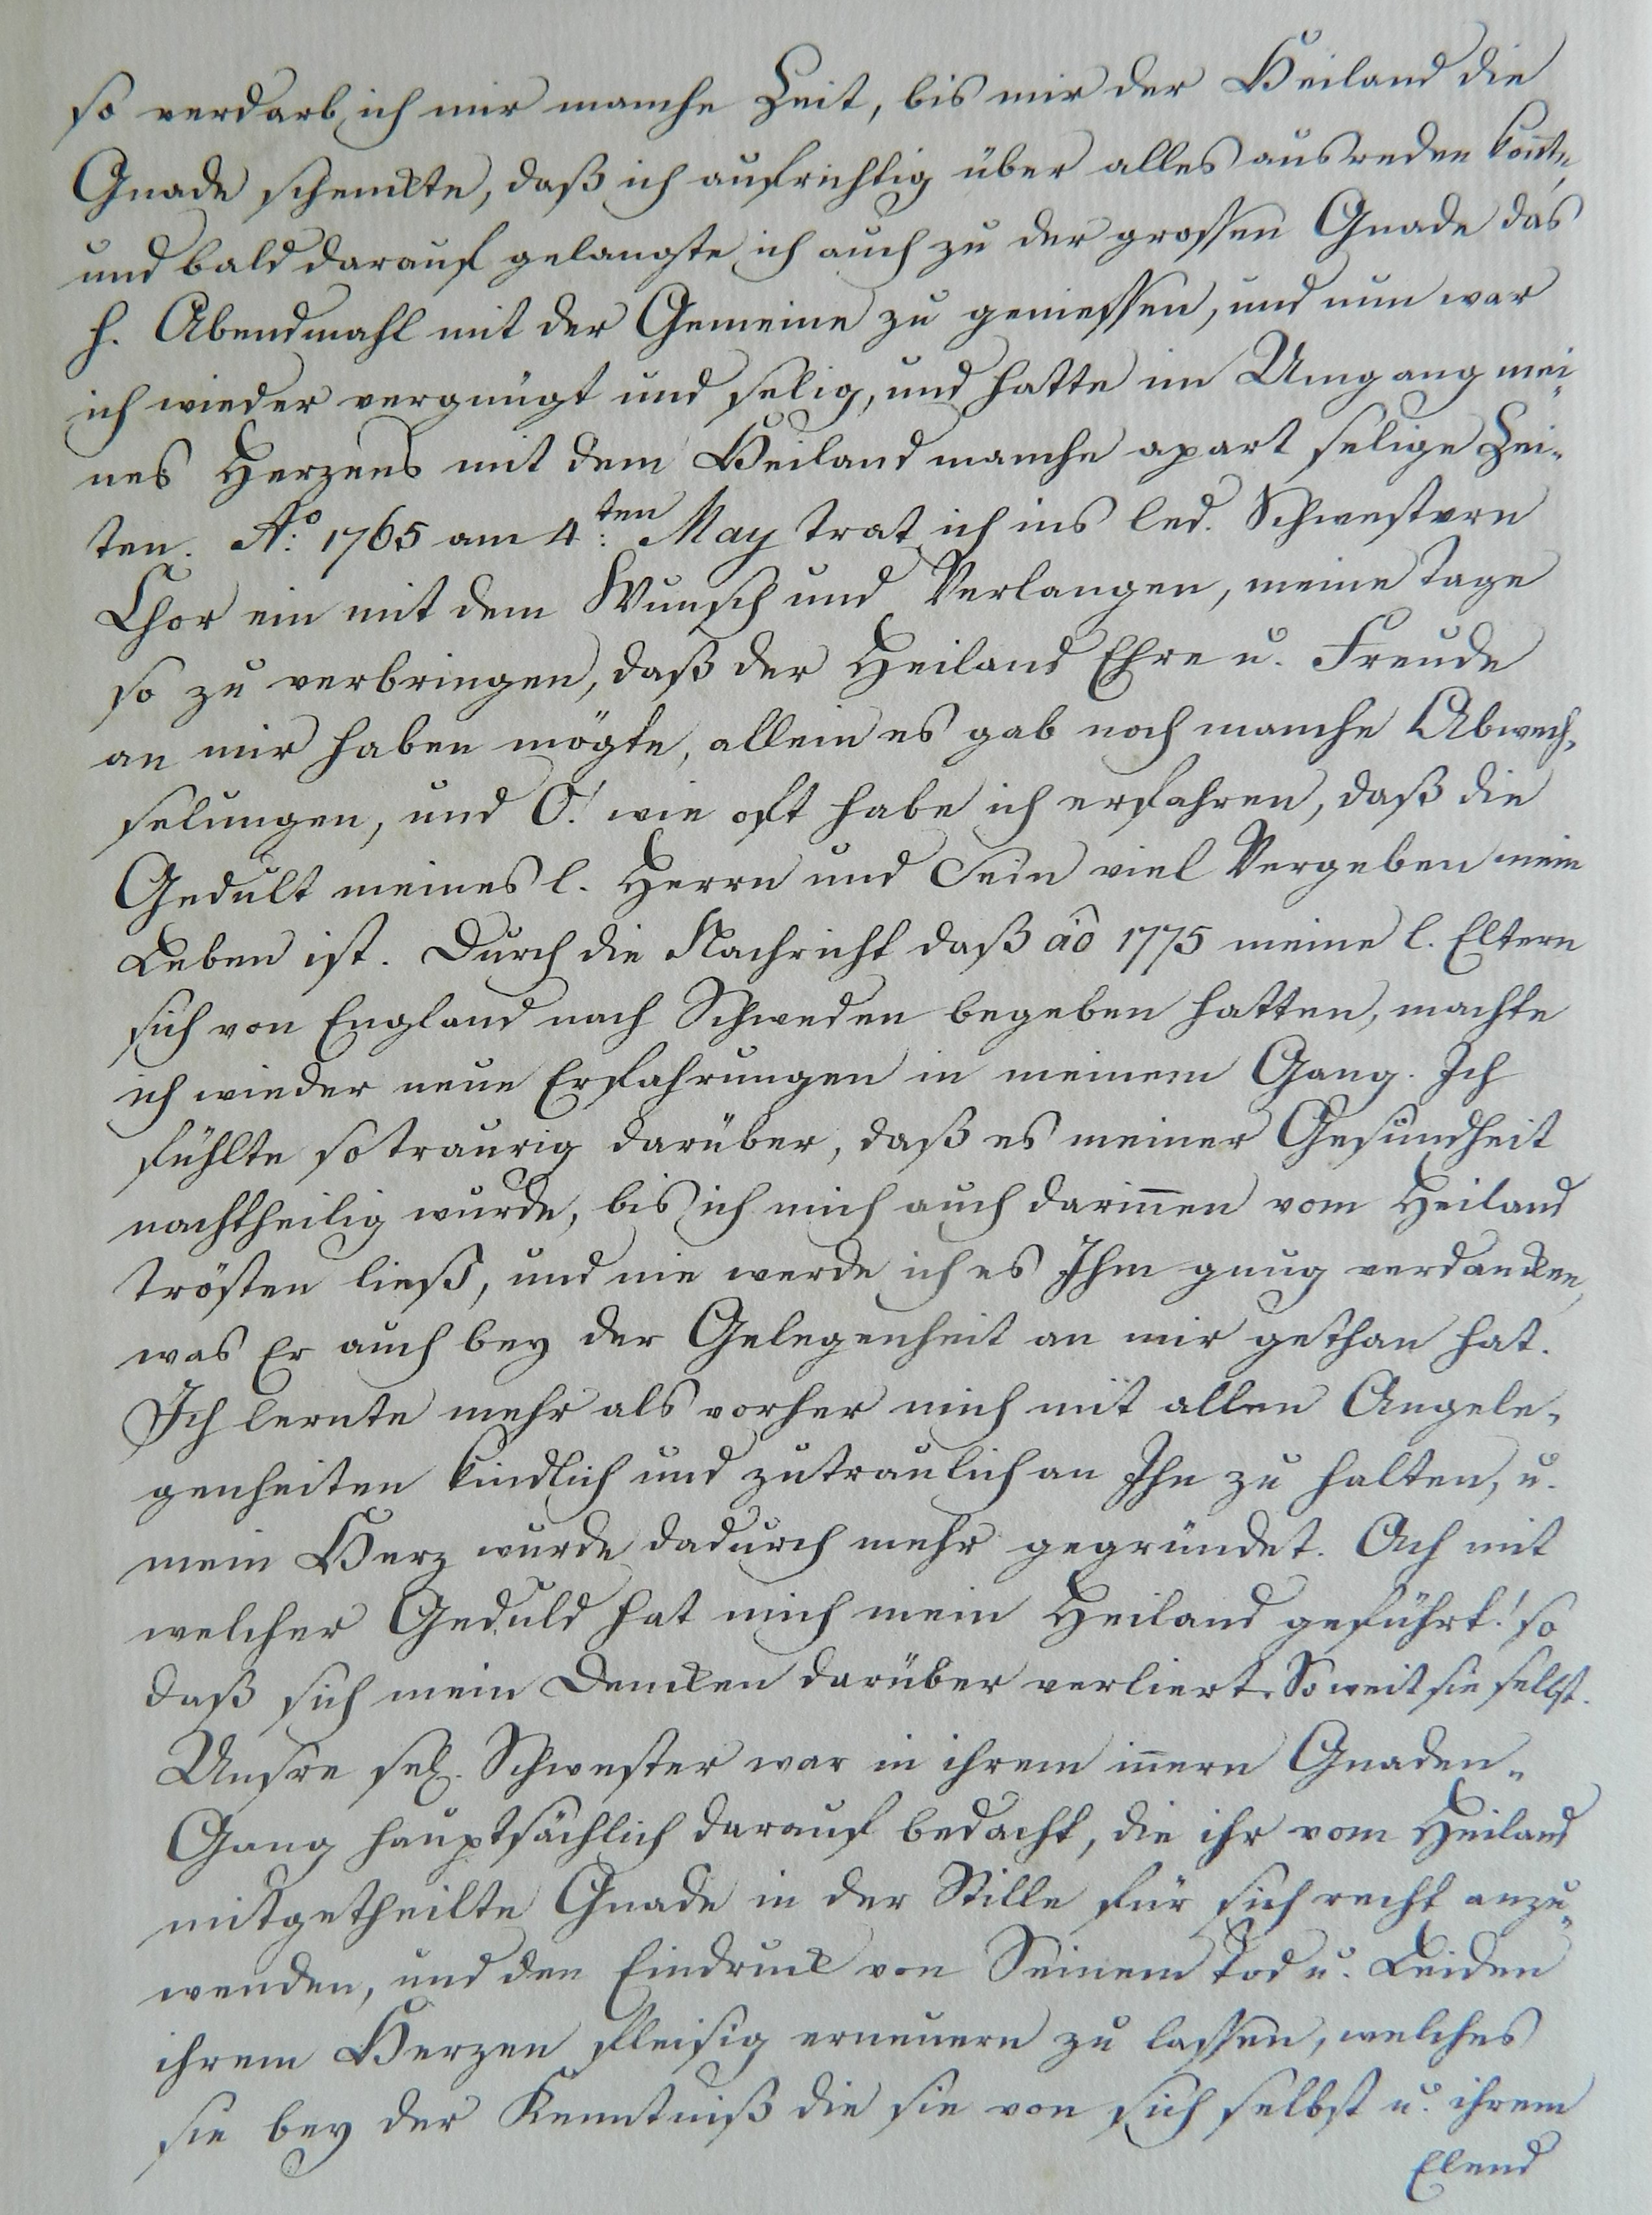 so verdarb ich mir manche Zeit, bis mir der Heiland die
Gnade schenckte, daß ich aufrichtig über alles ausreden kon̄te,
und bald darauf gelangte ich auch zu der grossen Gnade das
h. Abendmahl mit der Gemeine zu geniessen, und nun war
ich wieder vergnügt und selig, und hatte im Umgang mei-
nes Herzens mit dem Heiland manche apart selige Zei-
ten. Ao: 1765 am 4:ten May trat ich ins led. Schwestern
Chor ein mit dem Wunsch und Verlangen, meine Tage
so zu verbringen, daß der Heiland Ehre u. Freude
an mir haben mögte, allein es gab noch manche Abwech-
selungen, und O! wie oft habe ich erfahren, daß die
Gedult meines l. Herrn und Sein viel Vergeben mein
Leben ist. Durch die Nachricht daß ao 1775 meine l. Eltern
sich von England nach Schweden begeben hatten, machte
ich wieder neue Erfahrungen in meinem Gang. Ich
fühlte so traurig darüber, daß es meiner Gesundheit
nachtheilig wurde, bis ich mich auch darin̄en vom Heiland
trösten ließ, und nie werde ich es Ihm gnug verdancken,
was Er auch bey der Gelegenheit an mir gethan hat.
Ich lernte mehr als vorher mich mit allen Angele-
genheiten kindlich und zutraulich an Ihn zu halten, u.
mein Herz wurde dadurch mehr gegründet. Ach mit
welcher Geduld hat mich mein Heiland geführt! so
daß sich mein Dencken darüber verliert. So weit sie selbst.
Unsre sel. Schwester war in ihrem in̄ern Gnaden-
Gang hauptsächlich darauf bedacht, die ihr vom Heiland
mitgetheilte Gnade in der Stille für sich recht anzu-
wenden, und den Eindruck von Seinem Tod u. Leiden
ihrem Herzen fleisig erneuern zu lassen, welches
sie bey der Kenntniß die sie von sich selbst u. ihrem
Elend